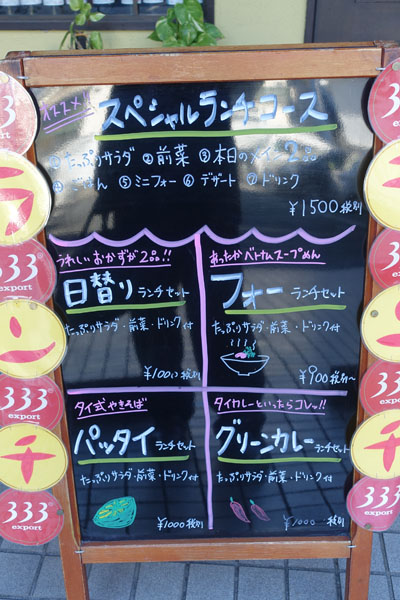 オススメ!!
スペシャルランチコース
①たっぷりサラダ ②前菜 ③本日のメイン2品
④ごはん ⑤ミニフォー ⑥デザート ⑦ドリンク
¥1500税別
うれしいおかずが2品!!
日替り ランチセット
たっぷりサラダ・前菜・ドリンク付
¥1000税別
あったかベトナムスープめん
フォー ランチセット
たっぷりサラダ・前菜・ドリンク付
¥900税別〜
タイ式やきそば
パッタイ ランチセット
たっぷりサラダ・前菜・ドリンク付
¥1000税別
タイカレーといったらコレッ!!
グリーンカレー ランチセット
たっぷりサラダ・前菜・ドリンク付
¥1000税別
333
export
ラ
333
export
ン
333
export
チ
333
export
333
ラ
333
export
ン
333
export
チ
333
export